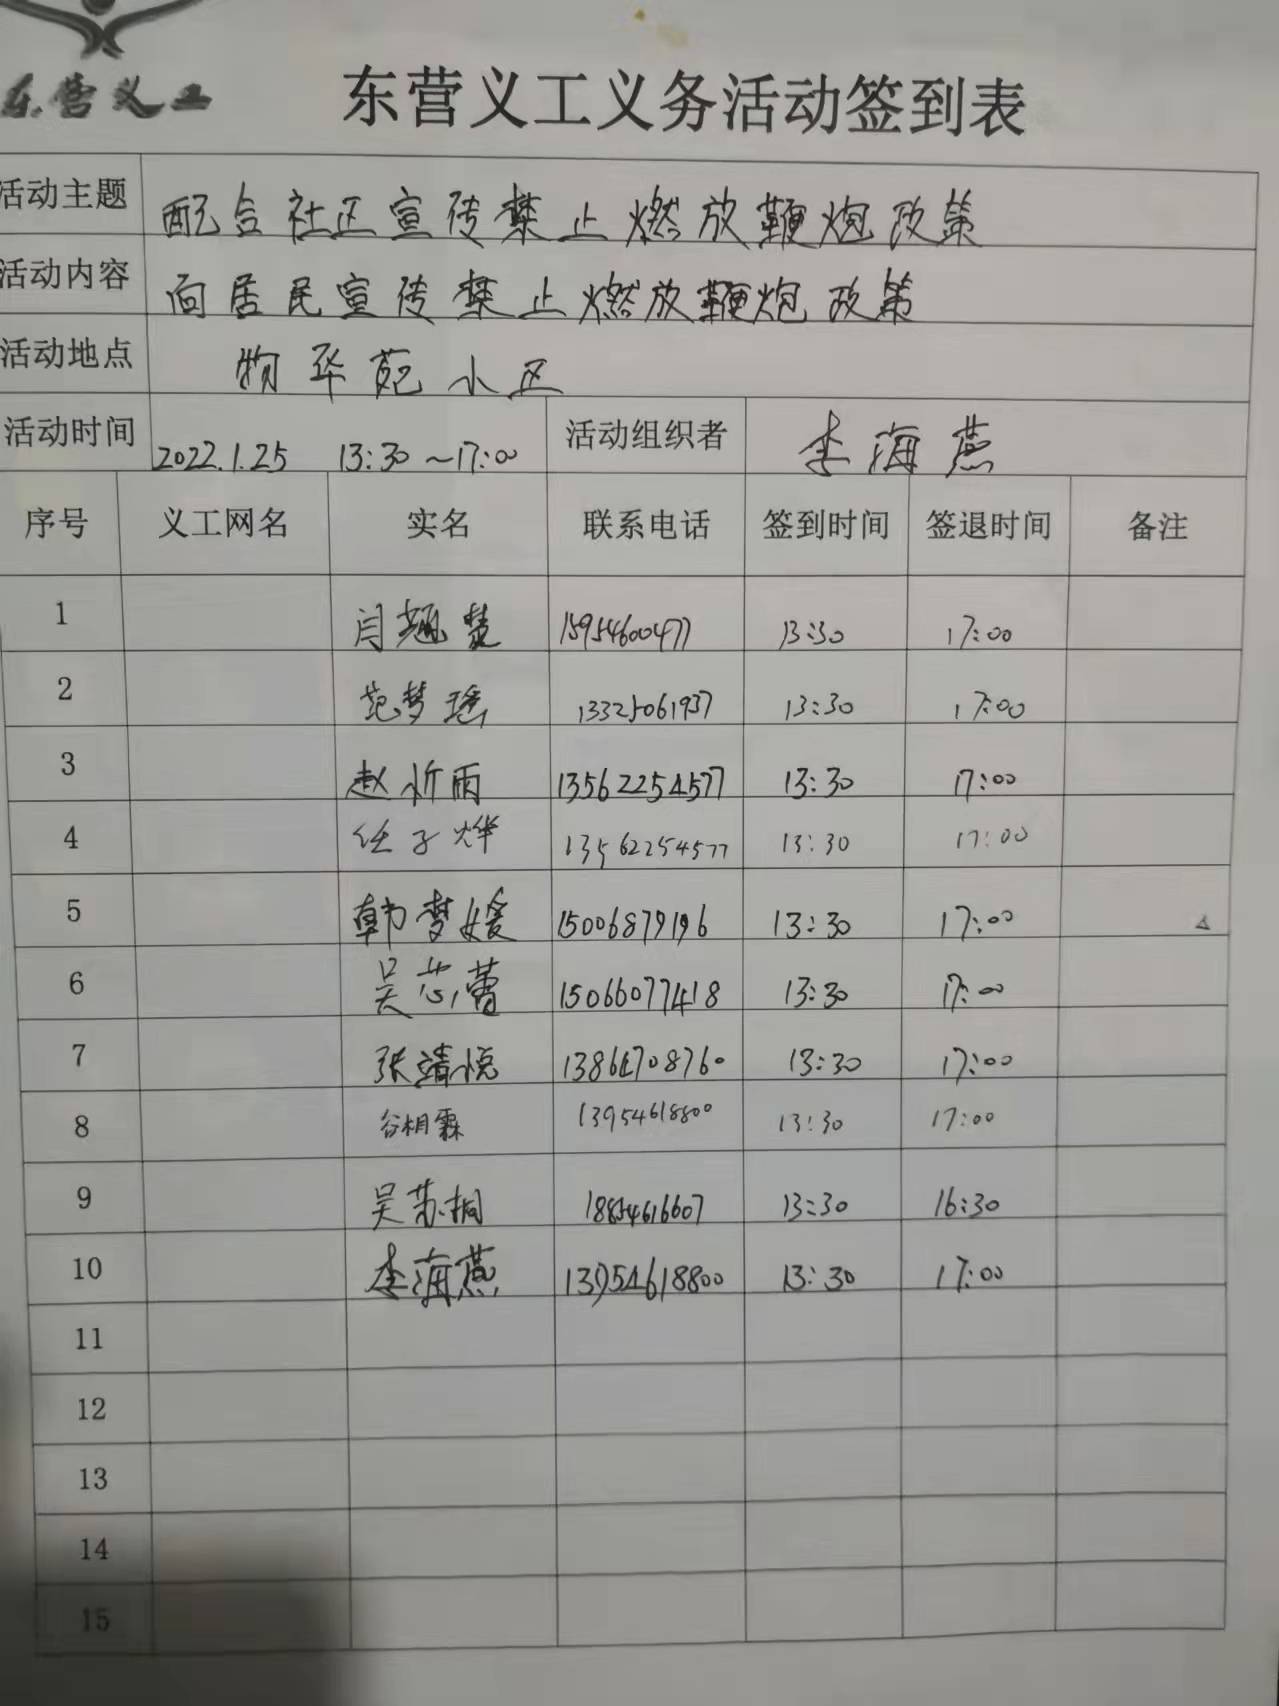 东营义工
东营义工义务活动签到表
活动主题 配合社区宣传禁止燃放鞭炮政策
活动内容 向居民宣传禁止燃放鞭炮政策
活动地点 物华苑小区
活动时间 2022.1.25 13:30~17:00 活动组织者 李海燕
序号 义工网名 实名 联系电话 签到时间 签退时间 备注
1 闫 15954600477 13:30 17:00
2 范梦瑶 13325061937 13:30 17:00
3 赵忻雨 13562254577 13:30 17:00
4 任子烨 13562254577 13:30 17:00
5 韩梦媛 15006879196 13:30 17:00
6 吴芯蕾 15066077418 13:30 17:00
7 张靖悦 13:30 17:00
8 谷相霖 13954618800 13:30 17:00
9 吴苏桐 13:30 16:30
10 李海燕 13954618800 13:30 17:00
11
12
13
14
15